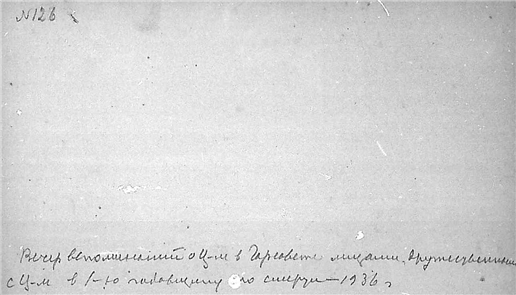 N 126
Вечер воспоминаний о Ц-м в Горсовете лицами, дружественными
с Ц-м в 1-ю годовщину его смерти – 1936 г